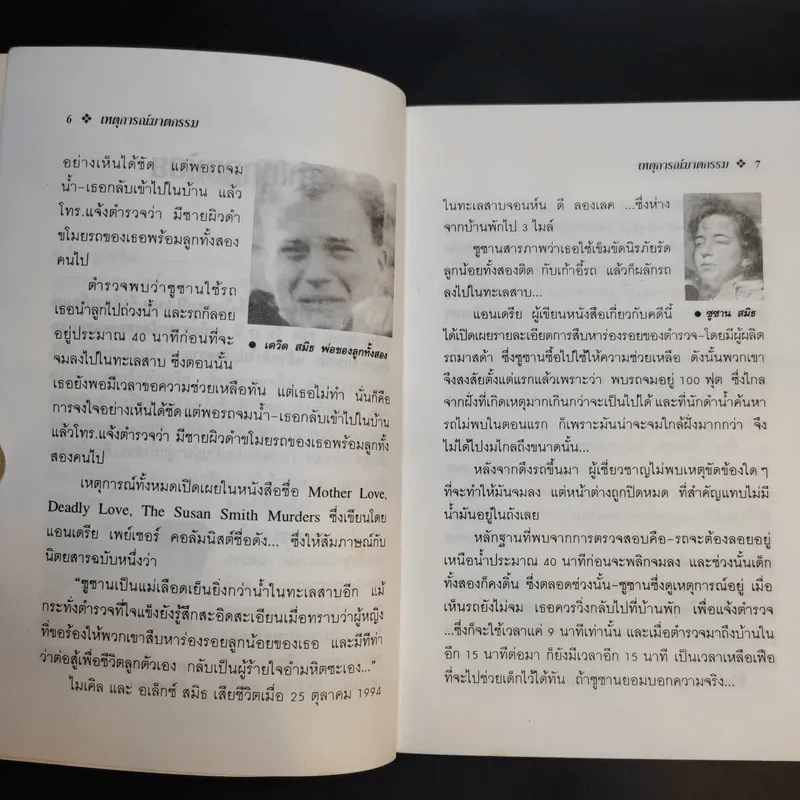 6 ❖ เหตุการณ์ฆาตกรรม
อย่างเห็นได้ชัด แต่พอรถจม
น้ำ-เธอกลับเข้าไปในบ้าน แล้ว
โทร.แจ้งตำรวจว่า มีชายผิวดำ
ขโมยรถของเธอพร้อมลูกทั้งสอง
คนไป
ตำรวจพบว่าซูซานใช้รถ
เธอนำลูกไปถ่วงน้ำ และรถก็ลอย
อยู่ประมาณ 40 นาทีก่อนที่จะ
จมลงไปในทะเลสาบ ซึ่งตอนนั้น
● เดวิด สมิธ พ่อของลูกทั้งสอง
เธอยังพอมีเวลาขอความช่วยเหลือทัน แต่เธอไม่ทำ นั่นก็คือ
การจงใจอย่างเห็นได้ชัด แต่พอรถจมน้ำ-เธอกลับเข้าไปในบ้าน
แล้วโทร.แจ้งตำรวจว่า มีชายผิวดำขโมยรถของเธอพร้อมลูกทั้ง
สองคนไป
เหตุการณ์ทั้งหมดเปิดเผยในหนังสือชื่อ Mother Love,
Deadly Love, The Susan Smith Murders ซึ่งเขียนโดย
แอนเดรีย เพย์เซอร์ คอลัมนิสต์ชื่อดัง... ซึ่งให้สัมภาษณ์กับ
นิตยสารฉบับหนึ่งว่า
“ซูซานเป็นแม่เลือดเย็นยิ่งกว่าน้ำในทะเลสาบอีก แม้
กระทั่งตำรวจที่ใจแข็งยังรู้สึกสะอิดสะเอียนเมื่อทราบว่าผู้หญิง
ที่ขอร้องให้พวกเขาสืบหาร่องรอยลูกน้อยของเธอ และมีทีท่า
ว่าต่อสู้เพื่อชีวิตลูกตัวเอง กลับเป็นผู้ร้ายใจอำมหิตซะเอง...”
ไมเคิล และ อเล็กซ์ สมิธ เสียชีวิตเมื่อ 25 ตุลาคม 1994
เหตุการณ์ฆาตกรรม ❖ 7
ในทะเลสาบจอนห์น ดี ลองเลค ...ซึ่งห่าง
จากบ้านพักไป 3 ไมล์
ซูซานสารภาพว่าเธอใช้เข็มขัดนิรภัยรัด
ลูกน้อยทั้งสองติด กับเก้าอี้รถ แล้วก็ผลักรถ
ลงไปในทะเลสาบ...
● ซูซาน สมิธ
แอนเดรีย ผู้เขียนหนังสือเกี่ยวกับคดีนี้
ได้เปิดเผยรายละเอียดการสืบหาร่องรอยของตำรวจ-โดยมีผู้ผลิต
รถมาสด้า ซึ่งซูซานซื้อไปใช้ให้ความช่วยเหลือ ดังนั้นพวกเขา
จึงสงสัยตั้งแต่แรกแล้วเพราะว่า พบรถจมอยู่ 100 ฟุต ซึ่งไกล
จากฝั่งที่เกิดเหตุมากเกินกว่าจะเป็นไปได้ และที่นักดำน้ำค้นหา
รถไม่พบในตอนแรก ก็เพราะมันน่าจะจมใกล้ฝั่งมากกว่า จึง
ไม่ได้ไปงมไกลถึงขนาดนั้น...
หลังจากดึงรถขึ้นมา ผู้เชี่ยวชาญไม่พบเหตุขัดข้องใด ๆ
ที่จะทำให้มันจมลง แต่หน้าต่างถูกปิดหมด ที่สำคัญแทบไม่มี
น้ำมันอยู่ในถังเลย
หลักฐานที่พบจากการตรวจสอบคือ-รถจะต้องลอยอยู่
เหนือน้ำประมาณ 40 นาทีก่อนจะพลิกจมลง และช่วงนั้นเด็ก
ทั้งสองก็คงดิ้น ซึ่งตลอดช่วงนั้น-ซูซานซึ่งดูเหตุการณ์อยู่ เมื่อ
เห็นรถยังไม่จม เธอควรวิ่งกลับไปที่บ้านพัก เพื่อแจ้งตำรวจ
...ซึ่งก็จะใช้เวลาแค่ 9 นาทีเท่านั้น และเมื่อตำรวจมาถึงบ้านใน
อีก 15 นาทีต่อมา ก็ยังมีเวลาอีก 15 นาที เป็นเวลาเหลือเฟือ
ที่จะไปช่วยเด็กไว้ได้ทัน ถ้าซูซานยอมบอกความจริง...